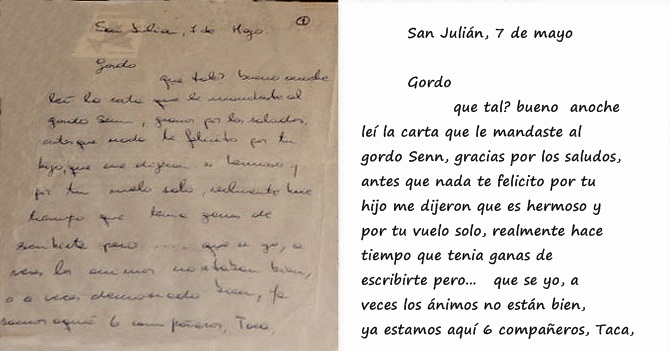 ①
San Julian, 7 de Mayo.
Gordo
que tal? bueno anoche
leí la carta que le mandaste al
gordo Senn, gracias por los saludos,
antes que nada te felicito por tu
hijo, que me dijeron es hermoso y
por tu vuelo solo, realmente hace
tiempo que tenia ganas de
escribirte pero .... que se yo, a
veces los animos no estaban bien,
o a veces demasiado bien, ya
somos aquí 6 compañeros, Taca,
San Julián, 7 de mayo
Gordo
que tal? bueno anoche
leí la carta que le mandaste al
gordo Senn, gracias por los saludos,
antes que nada te felicito por tu
hijo me dijeron que es hermoso y
por tu vuelo solo, realmente hace
tiempo que tenia ganas de
escribirte pero... que se yo, a
veces los ánimos no están bien,
ya estamos aquí 6 compañeros, Taca,